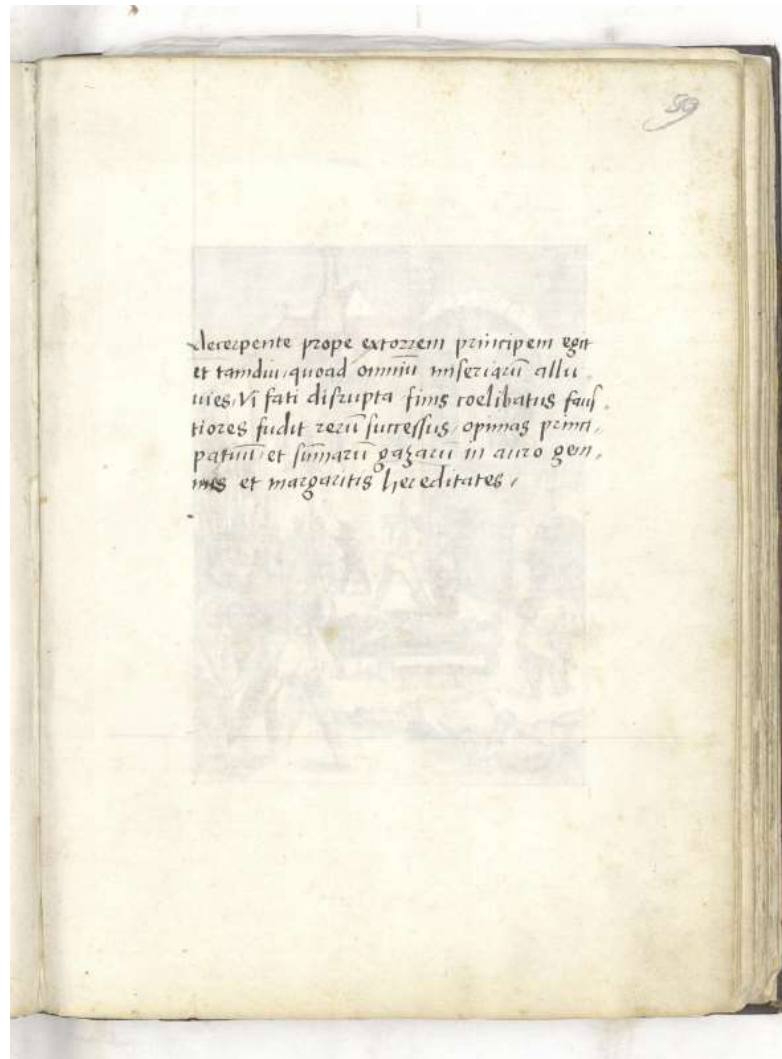 59
decerpente prope extorrem principem egit
et tamdiu, quoad omniū miseriarū allu
uies, Vi fati disrupta finis coelibatus faus
tiores fudit rerū successus, opimas princi,
patuū et sūmarū gazarū in auro gem,
mis et margaritis hereditates,